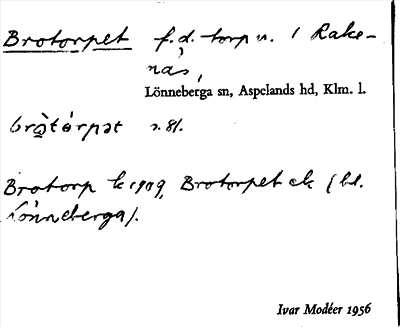 Brotorpet f.d. torp u. / Rake-
näs,
Lönneberga sn, Aspelands hd, Klm. l.
s. 81.
Brotorp k 1909, Brotorpet ek (bl.
Lönneberga).
Ivar Modéer 1956